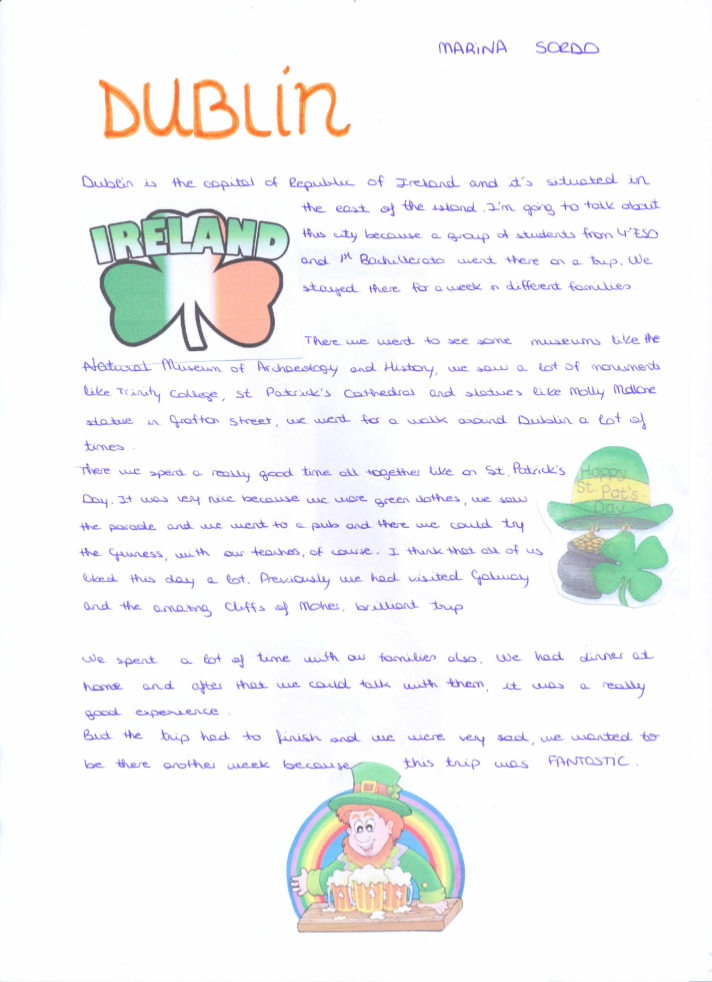 MARINA SORDO
DUBLIN
Dublin is the capital of Republic of Ireland and it's situated in
IRELAND
the east of the island. I'm going to talk about
this city because a group of students from 4ºESO
and 1st Bachillerato went there on a trip. We
stayed there for a week in different families.
There we went to see some museums like the
Natural Museum of Archaeology and History, we saw a lot of monuments
like Trinity College, St Patrick's Cathedral and statues like Molly Mallone
statue in Grafton Street, we went for a walk around Dublin a lot of
times.
There we spend a really good time all together like on St. Patrick's
Day. It was very nice because we wore green clothes, we saw
the parade and we went to a pub and there we could try
the Guiness, with our teachers, of course. I think that all of us
liked this day a lot. Previously we had visited Galway
and the amazing Cliffs of Moher, brilliant trip
Happy
St. Pat's
Day
We spent a lot of time with our families also. We had dinner at
home and after that we could talk with them, it was a really
good experience.
But the trip had to finish and we were very sad, we wanted to
be there another week because this trip was FANTASTIC.